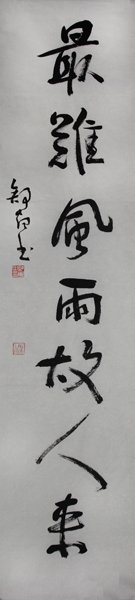 最難風雨故人來